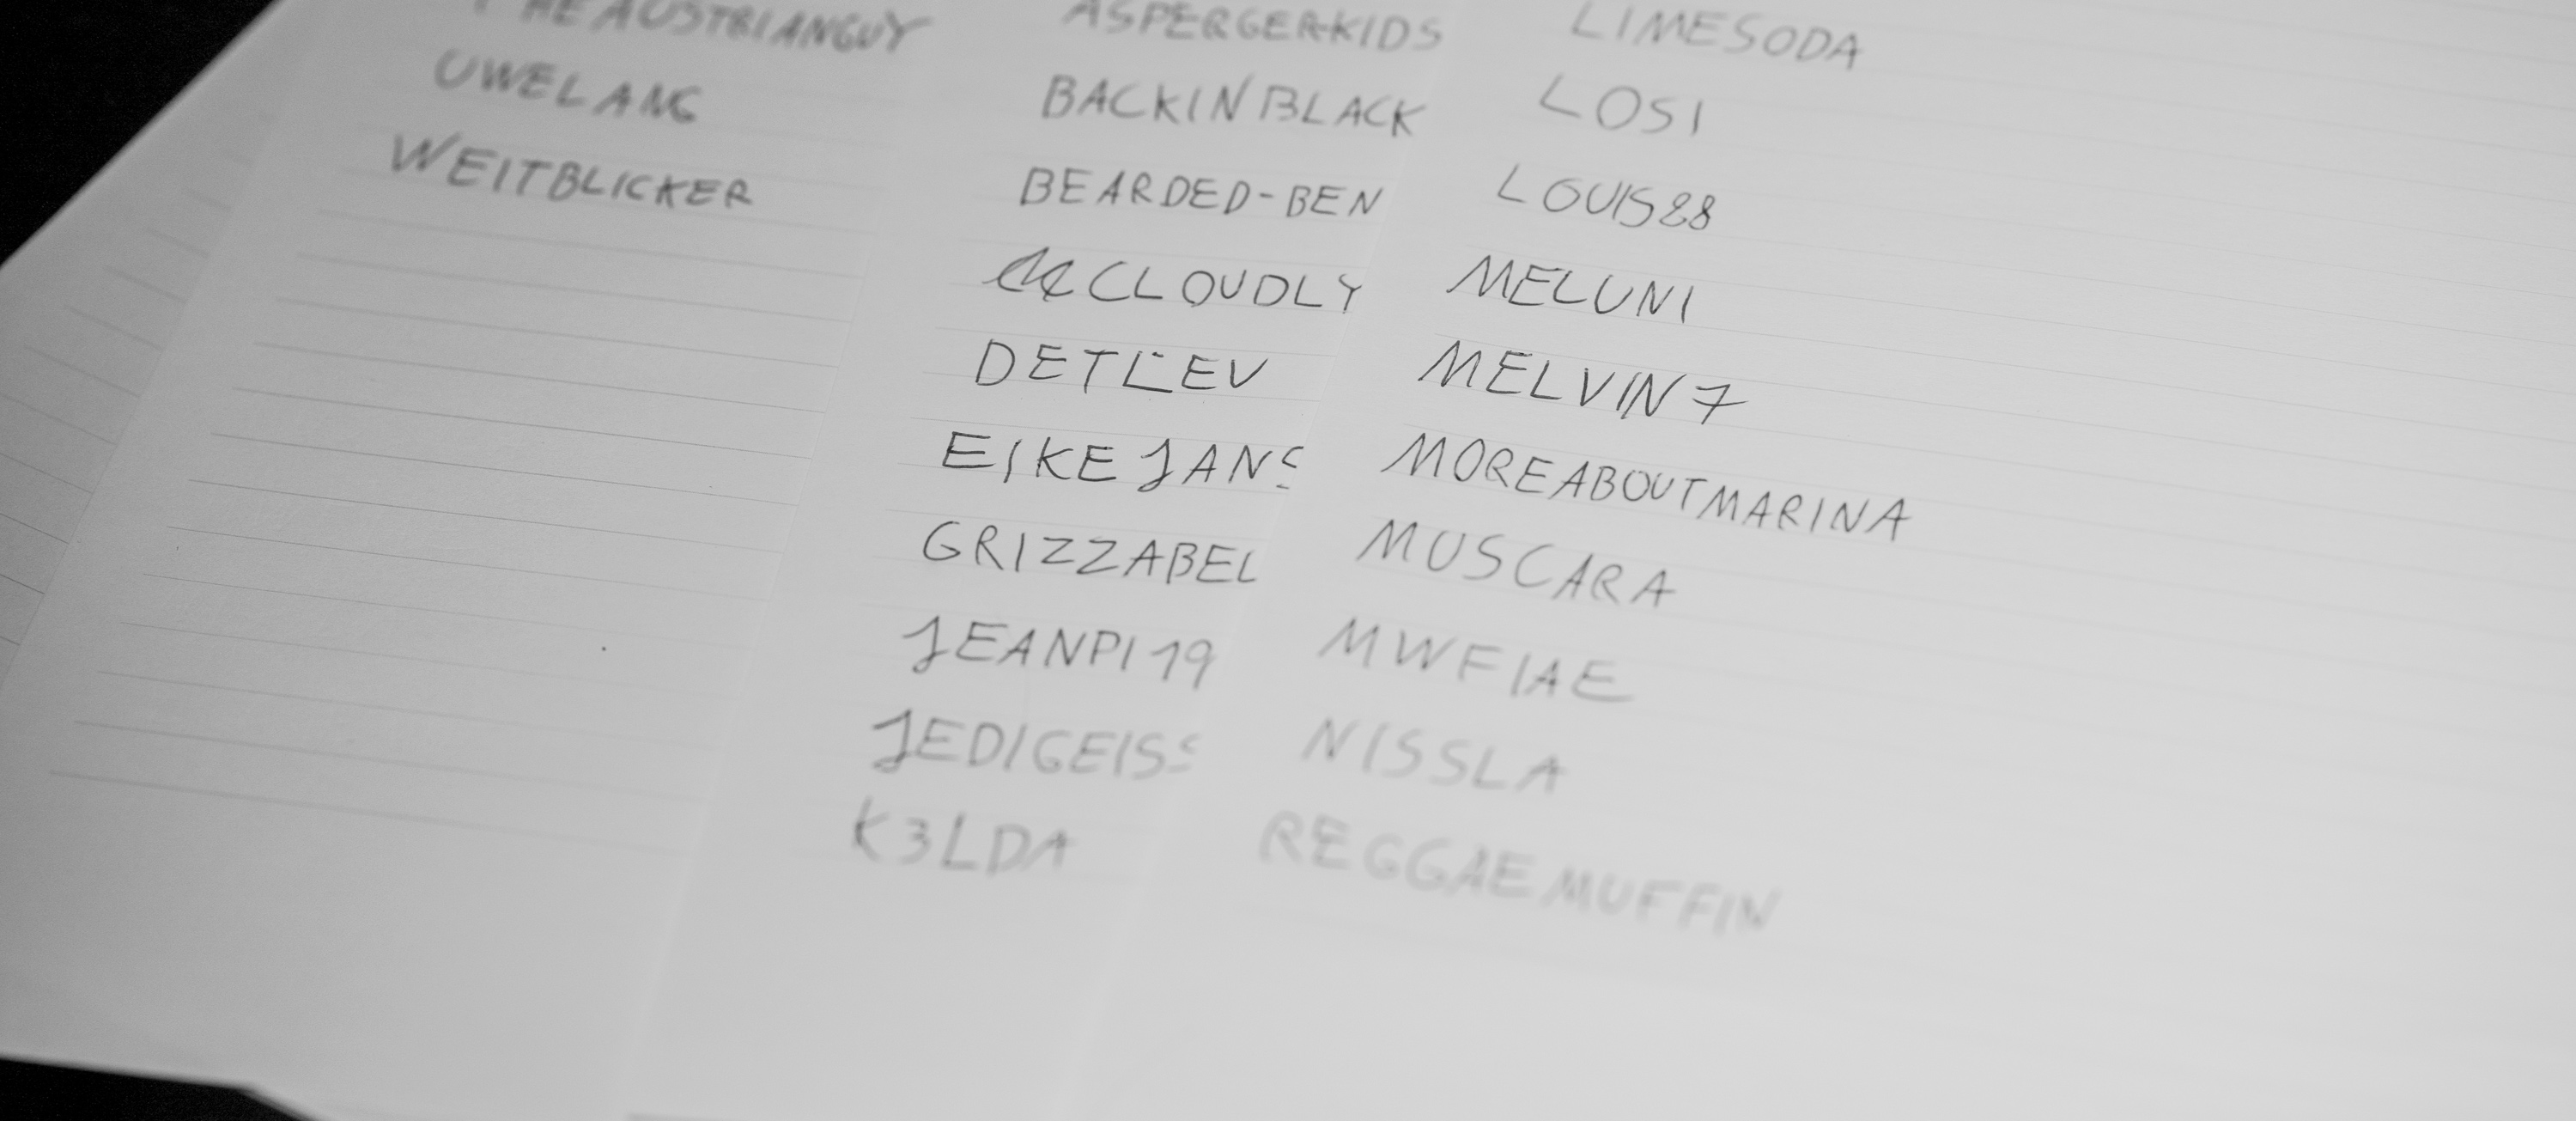 THEAUSTRIANGUY
UWELANG
WEITBLICKER
ASPERGERKIDS
BACKINBLACK
BEARDED-BEN
CLOUDLY
DETLEV
EIKEJANS
GRIZZABEL
JEANPI19
JEDIGEISS
K3LDA
LIMESODA
LOSI
LOUIS28
MELUNI
MELVIN7
MOREABOUTMARINA
MUSCARA
MWFIAE
NISSLA
REGGAEMUFFIN